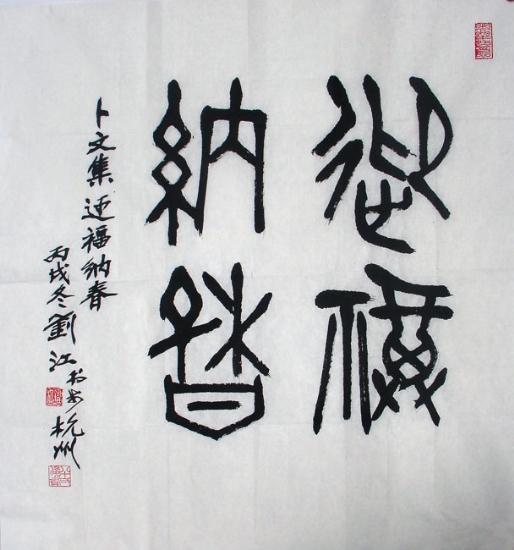 迎福
纳春
卜文集迎福纳春
丙戌冬刘江於杭州